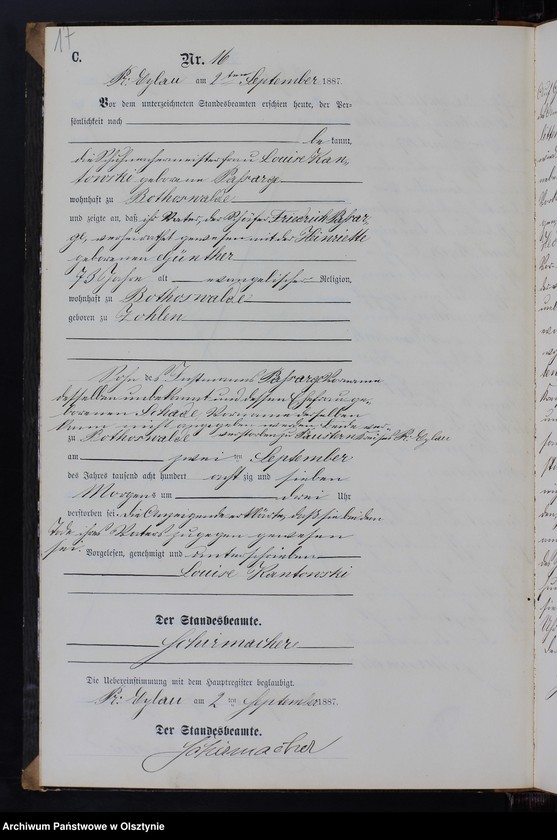 17
C.
Nr. 16
Pr: Eylau am 2ten September 1887.
Vor dem unterzeichneten Standesbeamten erschien heute, der Per-
sönlichkeit nach
be kannt,
die Schuhmachermeisterfrau Louise Kan-
towski geborene Passarge
wohnhaft zu Rothoswalde
und zeigte an, daß ihr Vater, der Schäfer Friedrich Passar-
ge, verheirathet gewesen mit der Henriette
geborenen Günther
73 Jahre alt evangelischer Religion,
wohnhaft zu Rothoswalde
geboren zu Zohlen
Sohn des Instmanns Passarge Vorname
desselben unbekannt und dessen Ehefrau ge-
borenen Schade Vorname derselben
kann nicht angegeben werden beide ver-
zu Rothoswalde verstorben zu Kreises Pr: Eylau
am zwei ten September
des Jahres tausend acht hundert acht zig und sieben
Morgens um drei Uhr
verstorben sei. die Anzeigende erklärte, daß sie bei dem
Tode ihres Vaters zugegen gewesen
sei. Vorgelesen, genehmigt und unterschrieben
Louise Kantowski
Der Standesbeamte.
Schirmacher
Die Uebereinstimmung mit dem Hauptregister beglaubigt.
Pr: Eylau am 2ten September 1887.
Der Standesbeamte.
Schirmacher
Archiwum Państwowe w Olsztynie